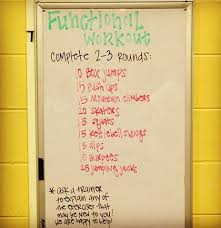 Functional
Workout
Complete 2-3 rounds:
10 Box jumps
15 Push ups
15 Mountain climbers
20 skaters
15 squats
15 Kettlebell swings
15 dips
10 burpees
25 jumping jacks
* ask a trainer
to explain any of
the exercises that
may be new to you!
we are happy to help!